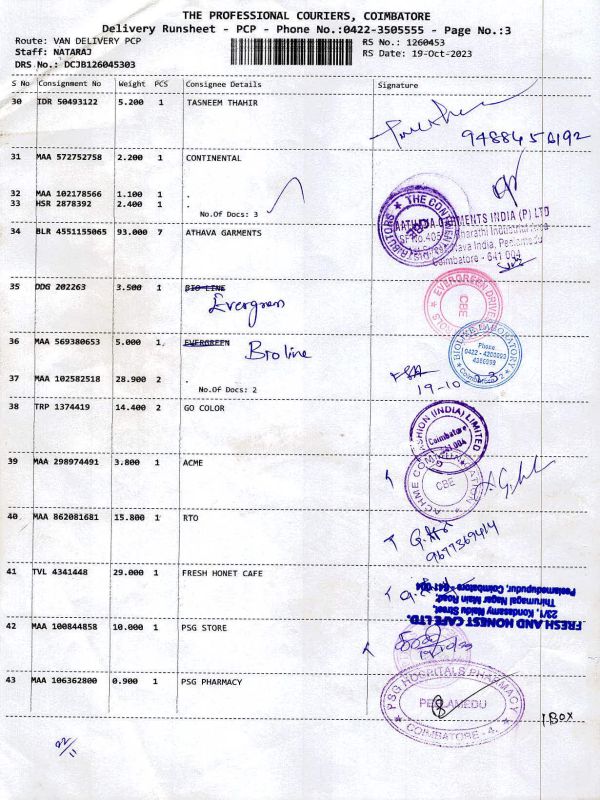 THE PROFESSIONAL COURIERS, COIMBATORE
Delivery Runsheet - PCP - Phone No.:0422-3505555 - Page No.:3
Route: VAN DELIVERY PCP
Staff: NATARAJ
DRS No.: DCJB126045303
RS No.: 1260453
RS Date: 19-Oct-2023
S No Consignment No Weight PCS Consignee Details Signature
30 IDR 50493122 5.200 1 TASNEEM THAHIR
31 MAA 572752758 2.200 1 CONTINENTAL
32 MAA 102178566 1.100 1 .
33 HSR 2878392 2.400 1 .
No.Of Docs: 3
34 BLR 4551155065 93.000 7 ATHAVA GARMENTS
GARMENTS INDIA (P) LTD
Coimbatore - 641
35 DDG 202263 3.500 1 BIO LINE
Evergreen
EVERGREEN DRIVE
CBE
36 MAA 569380653 5.000 1 EVERGREEN
Bioline
BIOLINE LABORATORY
Phone
0422 - 4200093
4380099
Coimbatore
37 MAA 102582518 28.900 2 .
No.Of Docs: 2
19-10
38 TRP 1374419 14.400 2 GO COLOR
FASHION (INDIA) LIMITED
Coimbatore
641 004
39 MAA 298974491 3.800 1 ACME
CBE
40 MAA 862081681 15.800 1 RTO
9677369414
41 TVL 4341448 29.000 1 FRESH HONET CAFE
FRESH AND HONEST CAFE LTD.
23/1, Kondasamy Naidu Street,
Thirumagal Nagar Main Road,
Peelamedupudur, Coimbatore - 641 004
42 MAA 100844858 10.000 1 PSG STORE
19/10/23
43 MAA 106362800 0.900 1 PSG PHARMACY
PSG HOSPITALS PHARMACY
PEELAMEDU
COIMBATORE - 4.
1 BOX
22/11